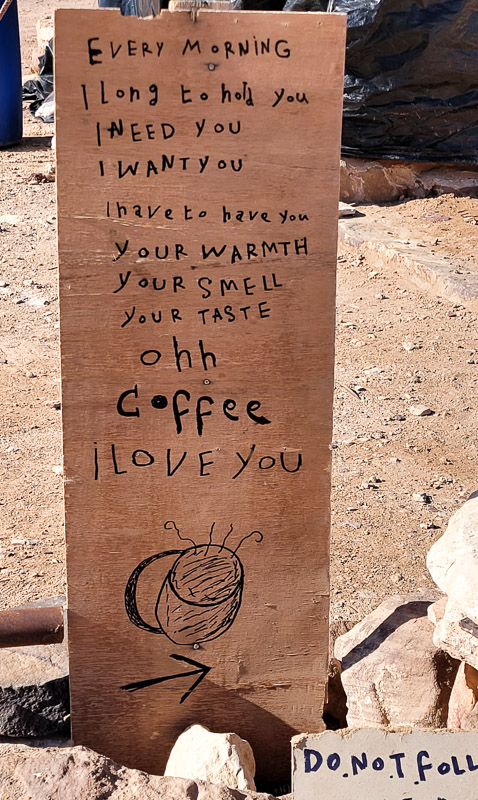 EVERY MORNING
I Long to hold you
I NEED YOU
I WANT YOU
I have to have you
YOUR WARMTH
YOUR SMELL
YOUR TASTE
ohh
Coffee
i LOVE YOU
DO.NOT